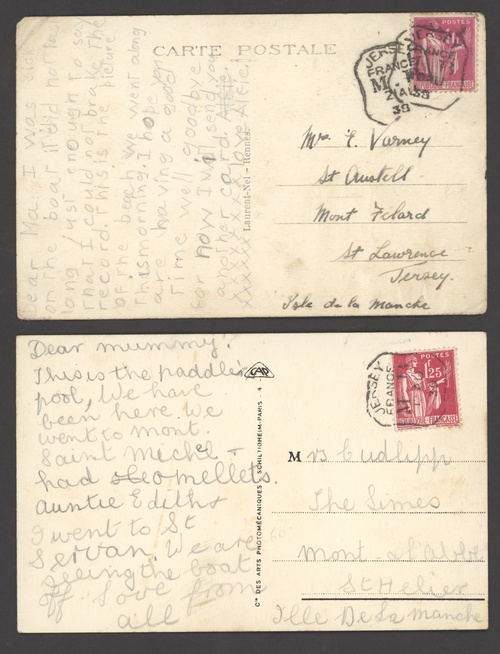 CARTE POSTALE
Dear Ma I was sick
on the boat it did not last
long just enough to say
that I could not brake the
record. This is the picture
of the beach we went along
this morning. I hope you
are having a good
time well goodbye
for now I will send you
another card
xxxxxx love
Laurent-Nel - Rennes
JERSEY
FRANCE
M
38
POSTES
Mrs F. Varney
St Austell
Mont Félard
St Lawrence
Jersey.
Isle de la Manche
Dear mummy!
This is the paddleing
pool, We have
been here. We
went to mont.
Saint Michel -
had omellets.
auntie Edith &
I went to St
Servan. We are
seeing the boat
off Love from
all
CAP
Cie DES ARTS PHOTOMÉCANIQUES - SCHILTIGHEIM-PARIS - 4
JERSEY
FRANCE
POSTES
1F25
Mrs Cudlipp
The Limes
Mont-à-l'Abbé
St Helier
Ille De La Manche